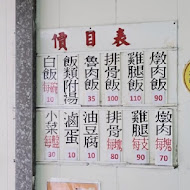 價目表
燉肉飯
90
雞腿飯
110
排骨飯
100
魯肉飯
35
飯類附湯
白飯
10
燉肉每塊
70
雞腿每支
90
排骨每塊
80
油豆腐
10
滷蛋
10
小菜
30